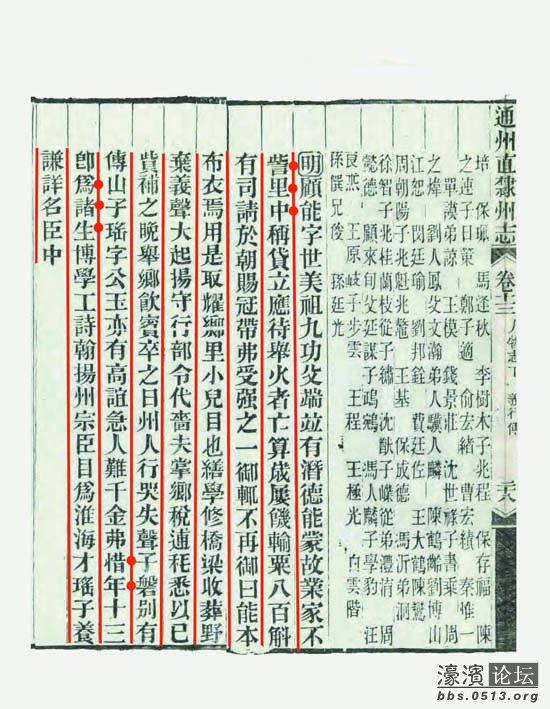 通州直隸州志 卷十三 人物志下 義行傳
培 保卿 馬逢秋 李樹木子兆程 保存福 陳
之運子日策 鄭子適 俞宏緒 曹宏積 秦惟一
單謨弟諒 王模 錢景莊 沈世祿子書乘 周
之煒 劉人鳳父文瀚弟人驥人麟 陳鶴齡劉博山
江恕 閔廷瑜 劉邦銓 費廷佐 王大鶴陳駕
周朝陽子兆魁兆鰲 王基 保成德 馮沂弟泂
徐智子兆桂蘭枝從子繡 沈猷子嶸從弟灃清 周
懿德 顧來旬父廷謀子 馮人麟子學豹 汪
良燕 王原岐子步雲 王程 王極光 白雲階
孫 兄俊 孫廷光
明顧能字世美祖九功父端竝有潛德能蒙故業家不
訾里中稱貸立應待舉火者亡算歲屢饑輸粟八百斛
有司請於朝賜冠帶弗受强之一御輒不再御曰能本
布衣焉用是取耀鄉里小兒目也繕學修橋梁收葬野
棄義聲大起揚守行部令代嗇夫掌鄉稅逋秏悉以己
貲補之晚舉鄉飲賓卒之日州人行哭失聲子磐別有
傳山子瑤字公玉亦有高誼急人難千金弗惜年十三
卽爲諸生博學工詩翰揚州宗臣目爲淮海才瑤子養
謙詳名臣中
濠濱论坛
bbs.0513.org